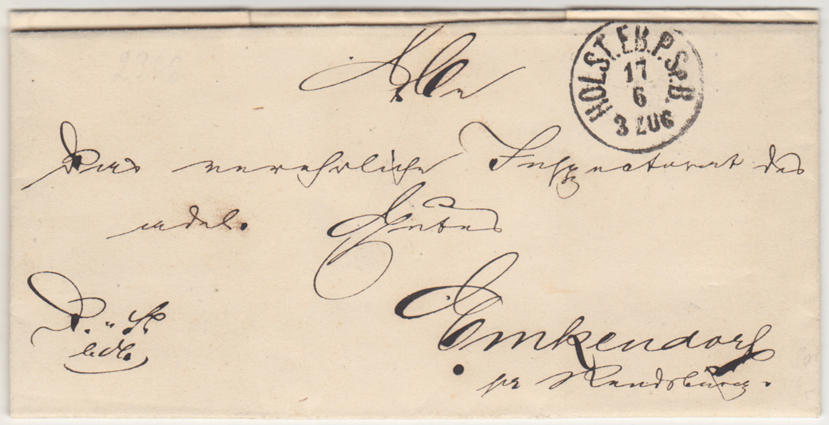 An
HOLST.EB.P.Sp.B.
17
6
3 ZUG
das verehrliche Inspectorat des
adel. Gutes
Emkendorf
pr Rendsburg.